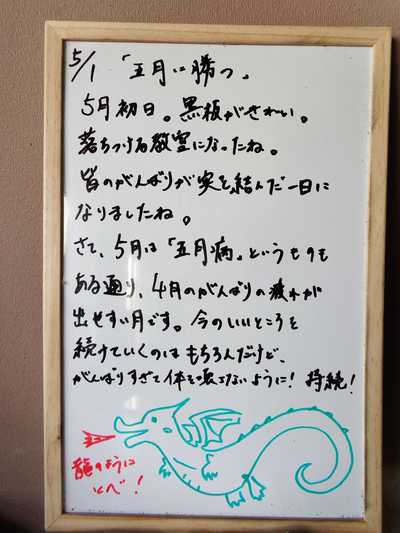 5/1 「五月に勝つ」
5月初日。黒板がきれい。
落ちつける教室になったね。
皆のがんばりが実を結んだ一日に
なりましたね。
さて、5月は「五月病」というものも
ある通り、4月のがんばりの疲れが
出やすい月です。今のいいところを
続けていくのはもちろんだけど、
がんばりすぎて体を壊さないように! 持続!
龍のように
とべ!